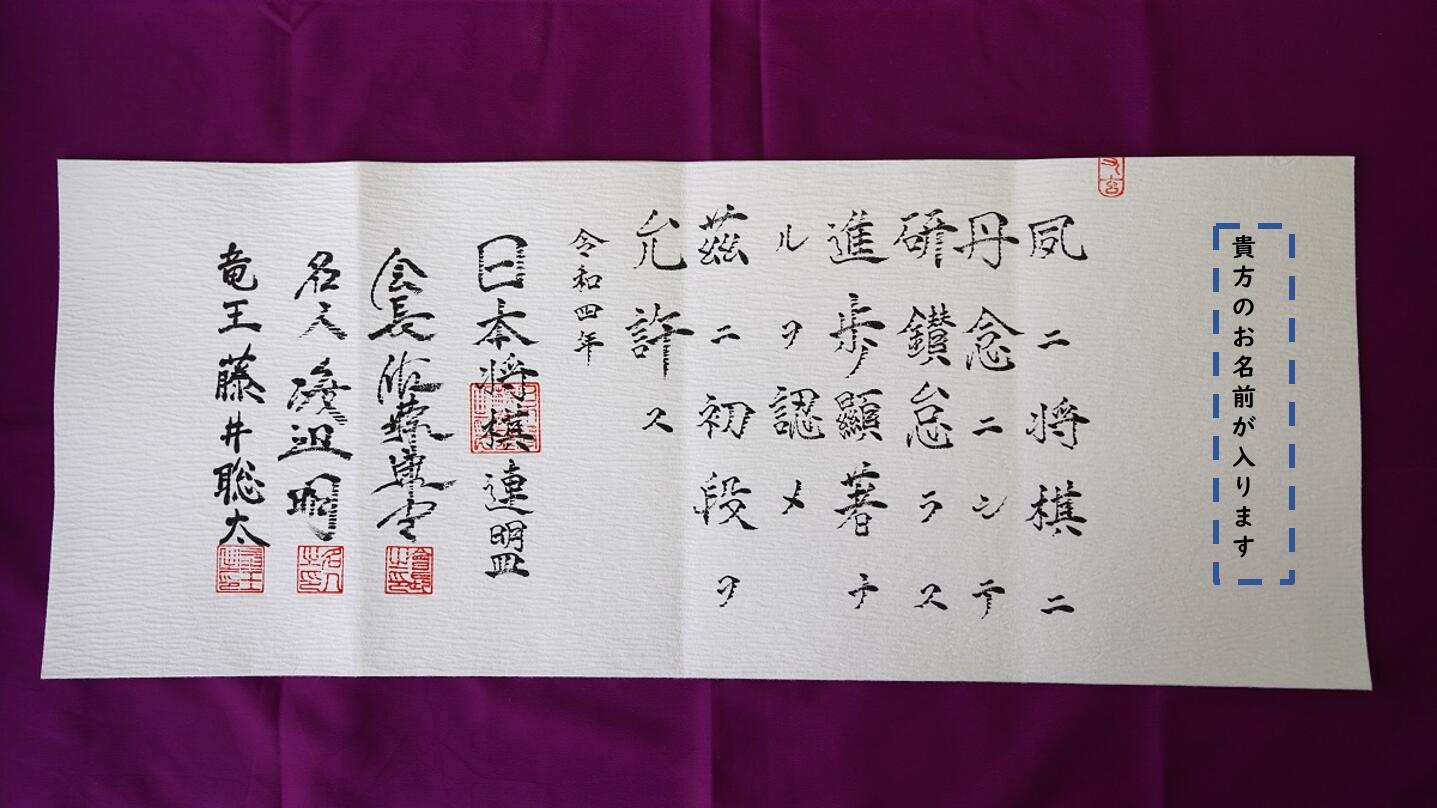 貴方のお名前が入ります
夙ニ将棋ニ
丹念ニシテ
研鑚怠ラス
進歩顯著ナ
ルヲ認メ
茲ニ初段ヲ
允許ス
令和四年
日本将棋連盟
会長 佐藤康光
會長之印
名人 渡辺明
名人之印
竜王 藤井聡太
龍王之印